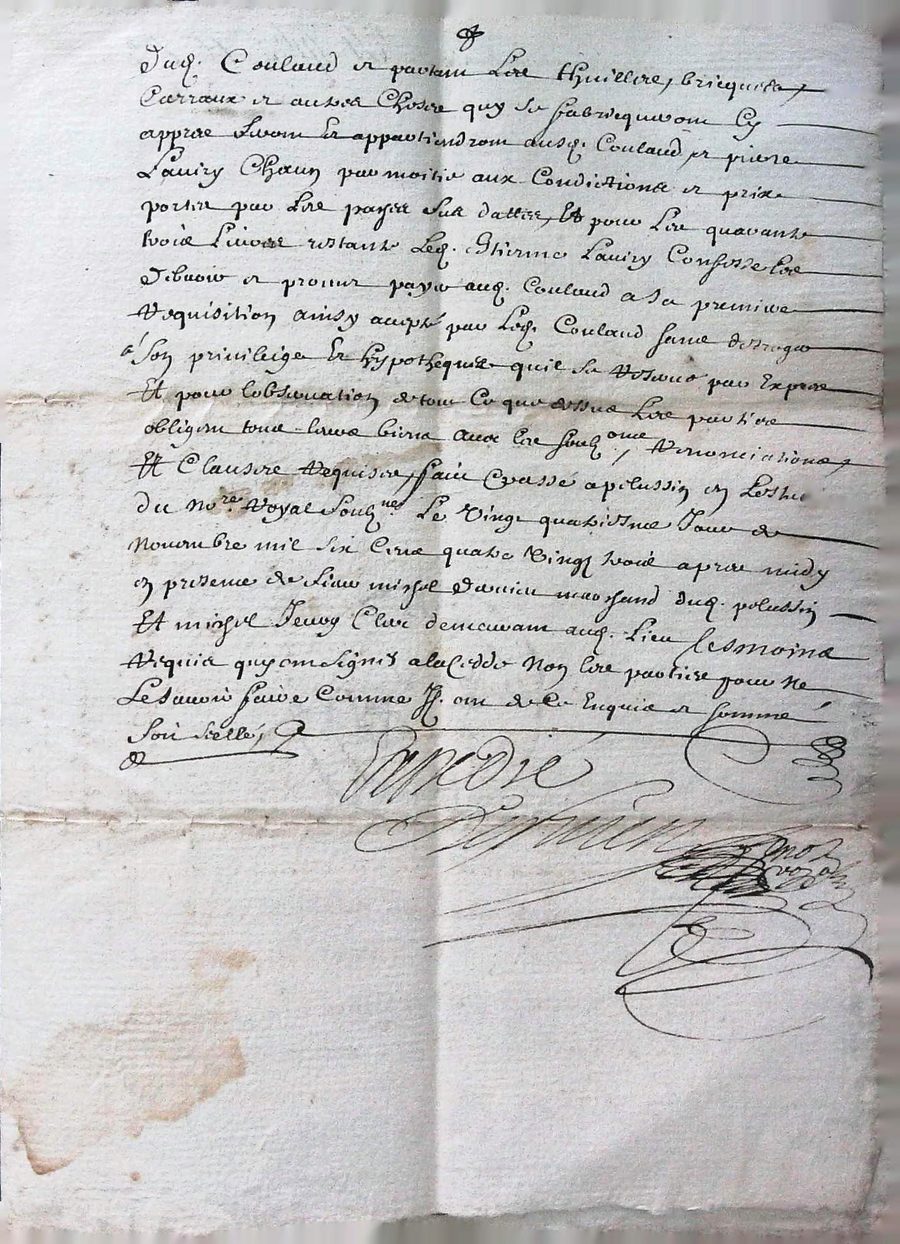 dud. Couland et partant les thuilles, bricques,
Carraux et autres choses quy se fabricqueront cy
appres seront et appartiendront ausd. Couland et pierre
Laviry Chacun par moitié aux Condictions et prix
portés par les payes sus dattes, Et pour les quarante
trois Livres restants led. Estienne Laviry Confesse les
debvoir et promet payer aud. Couland a sa premiere
requisition ainsy accepté par led. Couland sans desroger
a son privilege et hypotheques quil se reserve par Expres
Et pour lobservation de tout Ce que dessus les parties
obligent tous leurs biens avec les soub.ons, renonciations,
Et Clauses requises, fait et passé a pelussin en Lestude
du No.re Royal soub.né Le Vingt quatriesme Jour de
novembre mil six Cens quatre Vingt trois apres midy
en presence de sieur michel marchand dud. pelussin
Et michel Clerc demeurant aud. Lieu tesmoins
requis quy ont signés a la Cedde Non les parties pour ne
Le savoir faire Comme Ils ont dit de Ce Enquis et sommé
Soit scellé,